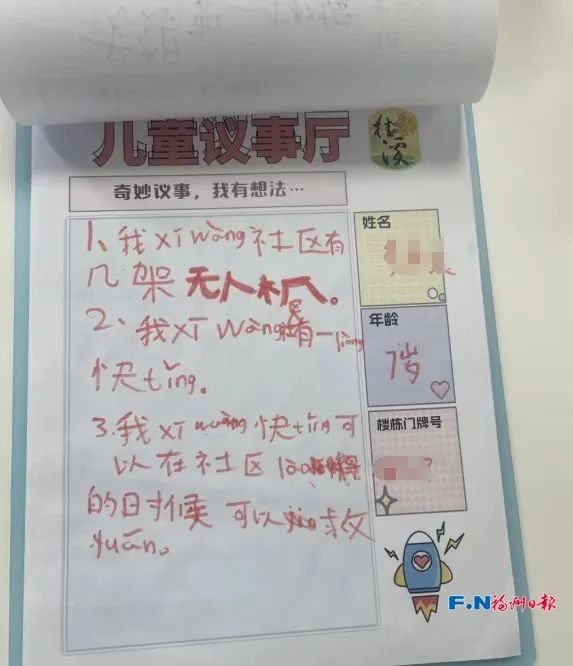 儿童议事厅
桂溪
奇妙议事，我有想法…
1、我xī wàng社区有
几架无人机。
2、我xī wàng有一liàng
快tǐng。
3.我xī wàng快tǐng可
以在社区
的时候可以救
yuán。
姓名
年龄
7岁
楼栋门牌号
F.N福州日报